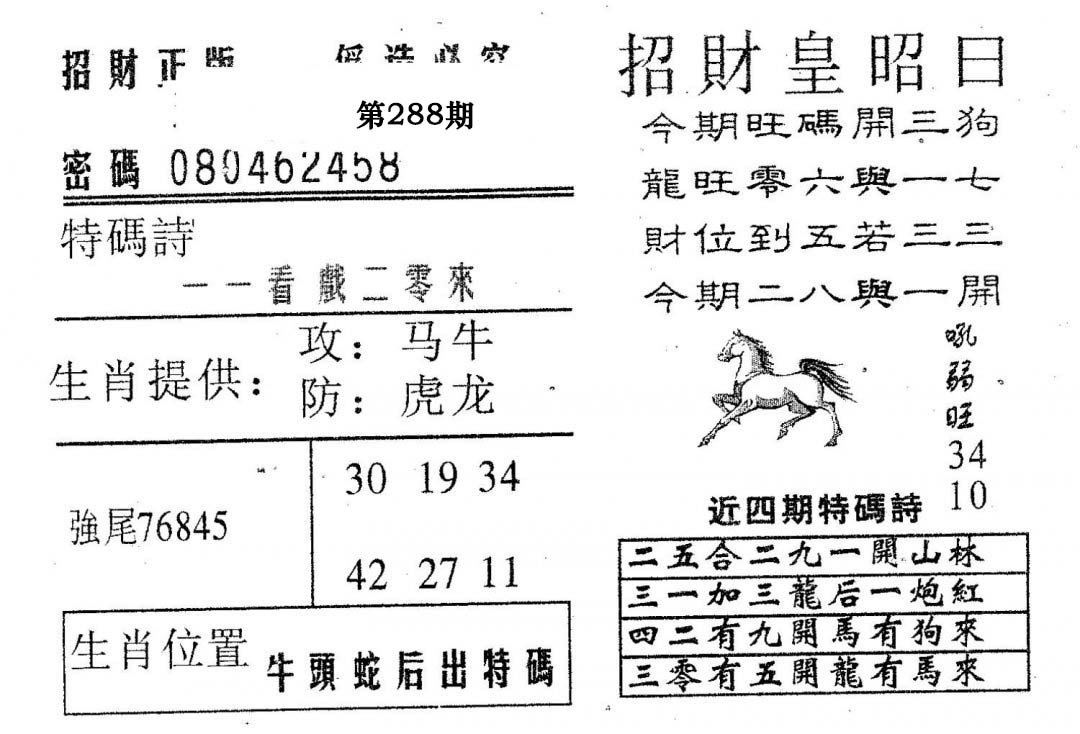 招財正版
第288期
密碼 080462458
特碼詩
一一看戲二零來
生肖提供：
攻：马牛
防：虎龙
強尾76845
30 19 34
42 27 11
生肖位置
牛頭蛇后出特碼
招財皇昭曰
今期旺碼開三狗
龍旺零六與一七
財位到五若三三
今期二八與一開
吼
弱
旺
34
10
近四期特碼詩
二五合二九一開山林
三一加三龍后一炮紅
四二有九開馬有狗來
三零有五開龍有馬來